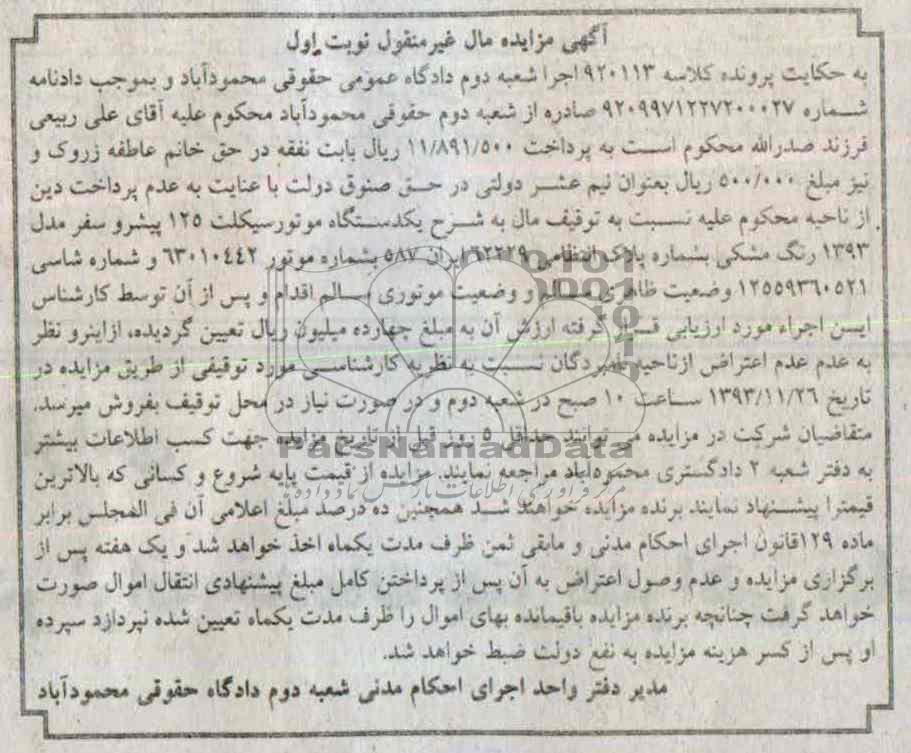 آگهی مزایده مال غیرمنقول نوبت اول
به حکایت پرونده کلاسه ۹۲۰۱۱۳ اجرا شعبه دوم دادگاه عمومی حقوقی محمودآباد و بموجب دادنامه
شماره ۹۲۰۹۹۷۱۲۲۷۲۰۰۰۲۷ صادره از شعبه دوم حقوقی محمودآباد محکوم علیه آقای علی ربیعی
فرزند صدرالله محکوم است به پرداخت ۱۱/۸۹۱/۵۰۰ ریال بابت نفقه در حق خانم عاطفه زروک و
نیز مبلغ ۵۰۰/۰۰۰ ریال بعنوان نیم عشر دولتی در حق صنوق دولت با عنایت به عدم پرداخت دین
از ناحیه محکوم علیه نسبت به توقیف مال به شرح یکدستگاه موتورسیکلت ۱۲۵ پیشرو سفر مدل
۱۳۹۳ رنگ مشکی بشماره پلاک انتظامی ۶۲۲۲۹ ایران ۵۸۷ بشماره موتور ۶۳۰۱۰۴۴۲ و شماره شاسی
۱۲۵۵۹۳۶۰۵۲۱ وضعیت ظاهری سالم و وضعیت موتوری سالم اقدام و پس از آن توسط کارشناس
ایسن اجراء مورد ارزیابی قرار گرفته ارزش آن به مبلغ چهارده میلیون ریال تعیین گردیده، ازاینرو نظر
به عدم عدم اعتراض ازناحیه نامبردگان نسبت به نظریه کارشناسی مورد توقیفی از طریق مزایده در
تاریخ ۱۳۹۳/۱۱/۲۶ ساعت ۱۰ صبح در شعبه دوم و در صورت نیاز در محل توقیف بفروش میرسد.
متقاضیان شرکت در مزایده می توانند حداقل ۵ روز قبل از تاریخ مزایده جهت کسب اطلاعات بیشتر
به دفتر شعبه ۲ دادگستری محمودآباد مراجعه نمایند. مزایده از قیمت پایه شروع و کسانی که بالاترین
قیمترا پیشنهاد نمایند برنده مزایده خواهند شد همچنین ده درصد مبلغ اعلامی آن فی المجلس برابر
ماده ۱۲۹قانون اجرای احکام مدنی و مابقی ثمن ظرف مدت یکماه اخذ خواهد شد و یک هفته پس از
برگزاری مزایده و عدم وصول اعتراض به آن پس از پرداختن کامل مبلغ پیشنهادی انتقال اموال صورت
خواهد گرفت چنانچه برنده مزایده باقیمانده بهای اموال را ظرف مدت یکماه تعیین شده نپردازد سپرده
او پس از کسر هزینه مزایده به نفع دولت ضبط خواهد شد.
مدیر دفتر واحد اجرای احکام مدنی شعبه دوم دادگاه حقوقی محمودآباد
ParsNamadData